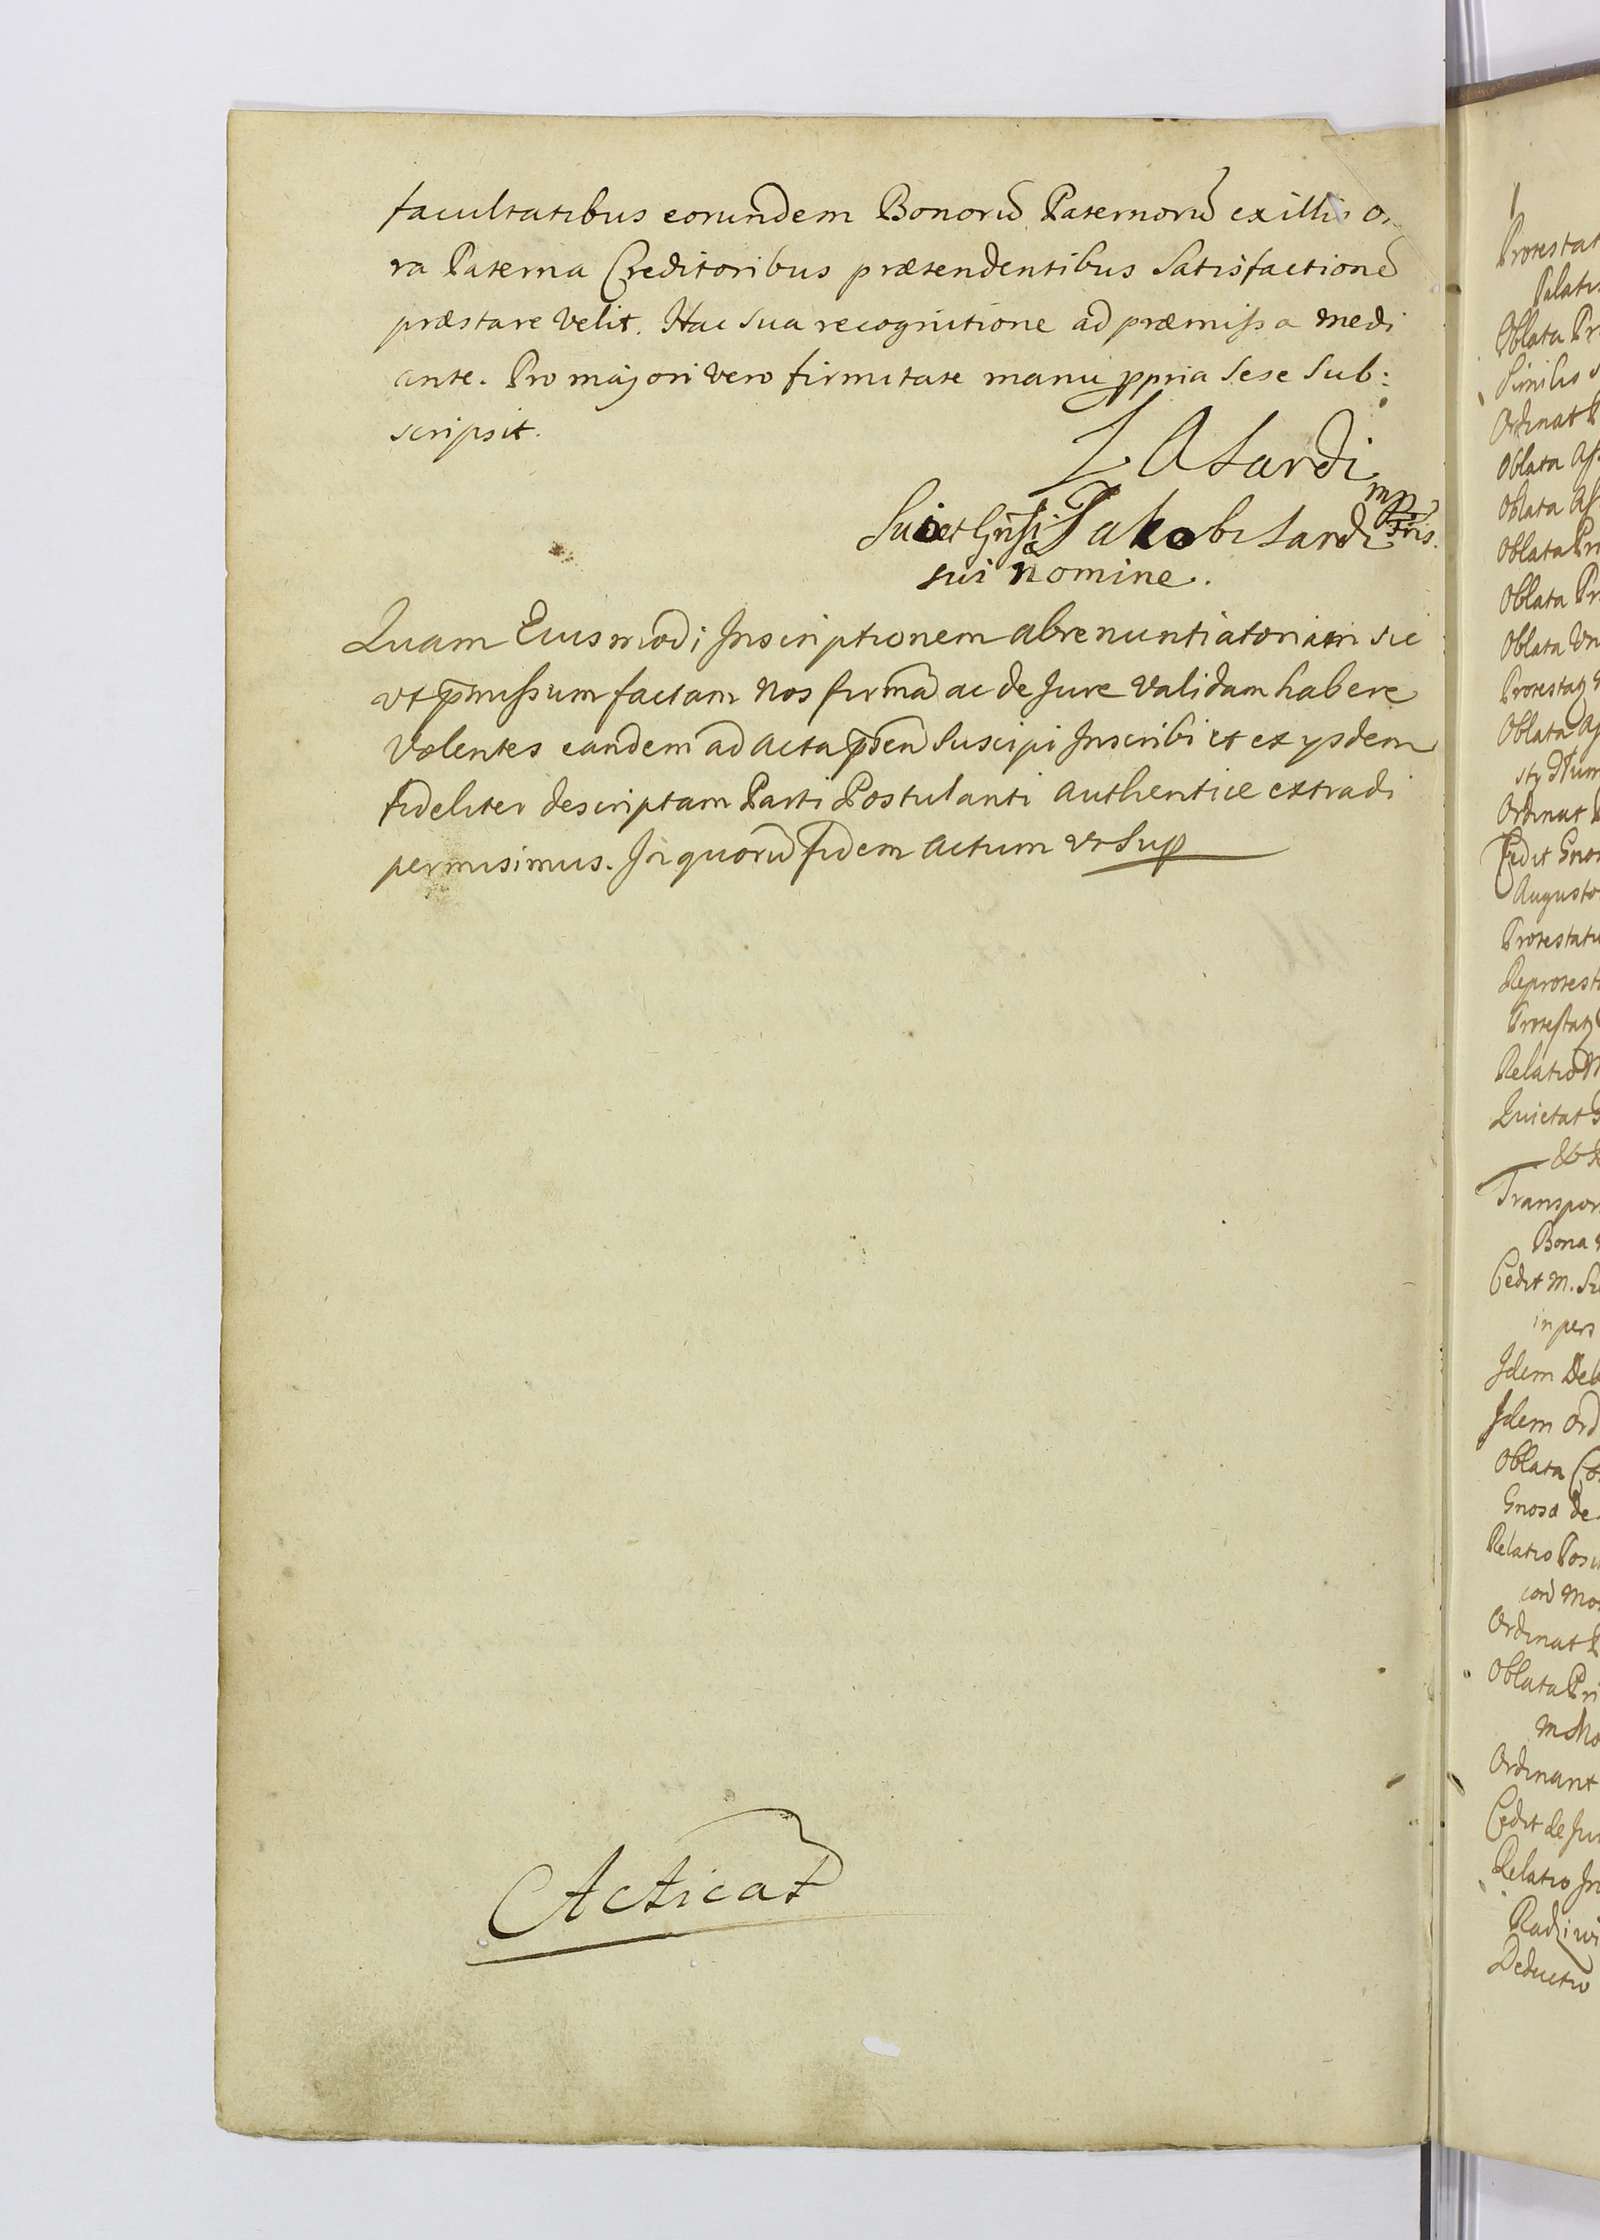 facultatibus eorundem Bonorū Paternorū ex illis o
ra Paterna Creditoribus prætendentibus Satisfactionē
præstare velit. Hac sua recognitione ad præmissa medi
ante. Pro majori vero firmitate manu ppria Sese Sub:
scripsit.
Z A Sardi
mp
Suo et Gnsi Jakobi Sardi Fris.
sui nomine.
Quam Eiusmodi Inscriptionem abrenuntiatoriam sic
ut pmissum factam Nos firmā ac de Jure validam habere
Volentes eandem ad Acta psen Suscipi Inscribi et ex ysdem
fideliter descriptam Parti Postulanti Authentice extradi
permisimus. In quorū fidem Actum ut Sup
Acticat
Protestat
Palati
Oblata Pr
Similis
Ordinat
Oblata
Oblata
Oblata Pri
Oblata Pr
Oblata Vn
Protestat
Oblata
Ordinat
Cedit Gnos
Augusto
Protestatu
Reprotest
Protestat
Relatio
Quietat
Transpor
Bona
Cedit M.
in pers
Idem Deb
Idem Ord
Oblata
Gnosa de
Relatio Posi
Ordinat
Oblata Pri
Ordinant
Cedit de Jur
Relatio In
Radziwi
Deductio